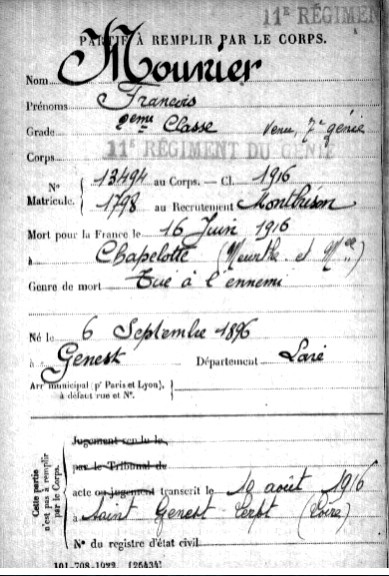 11E RÉGIMENT
PARTIE À REMPLIR PAR LE CORPS.
Nom Mounier
Prénoms François
Grade 2eme Classe Venu, 7e génie
Corps 11E RÉGIMENT DU GÉNIE
N° Matricule. { 13494 au Corps. — Cl. 1916
1798 au Recrutement Montbrison
Mort pour la France le 16 Juin 1916
à Chapelotte (Meurthe et Mlle)
Genre de mort Tué à l'ennemi
Né le 6 Septembre 1896
à Genest Département Loire
Arr' municipal (p' Paris et Lyon),
à défaut rue et N°.
Cette partie
n'est pas à remplir
par le Corps.
Jugement rendu le
par le Tribunal de
acte ou jugement transcrit le 10 août 1916
à Saint Genest Lerpt (Loire)
N° du registre d'état civil
101-708-1922. [26434]